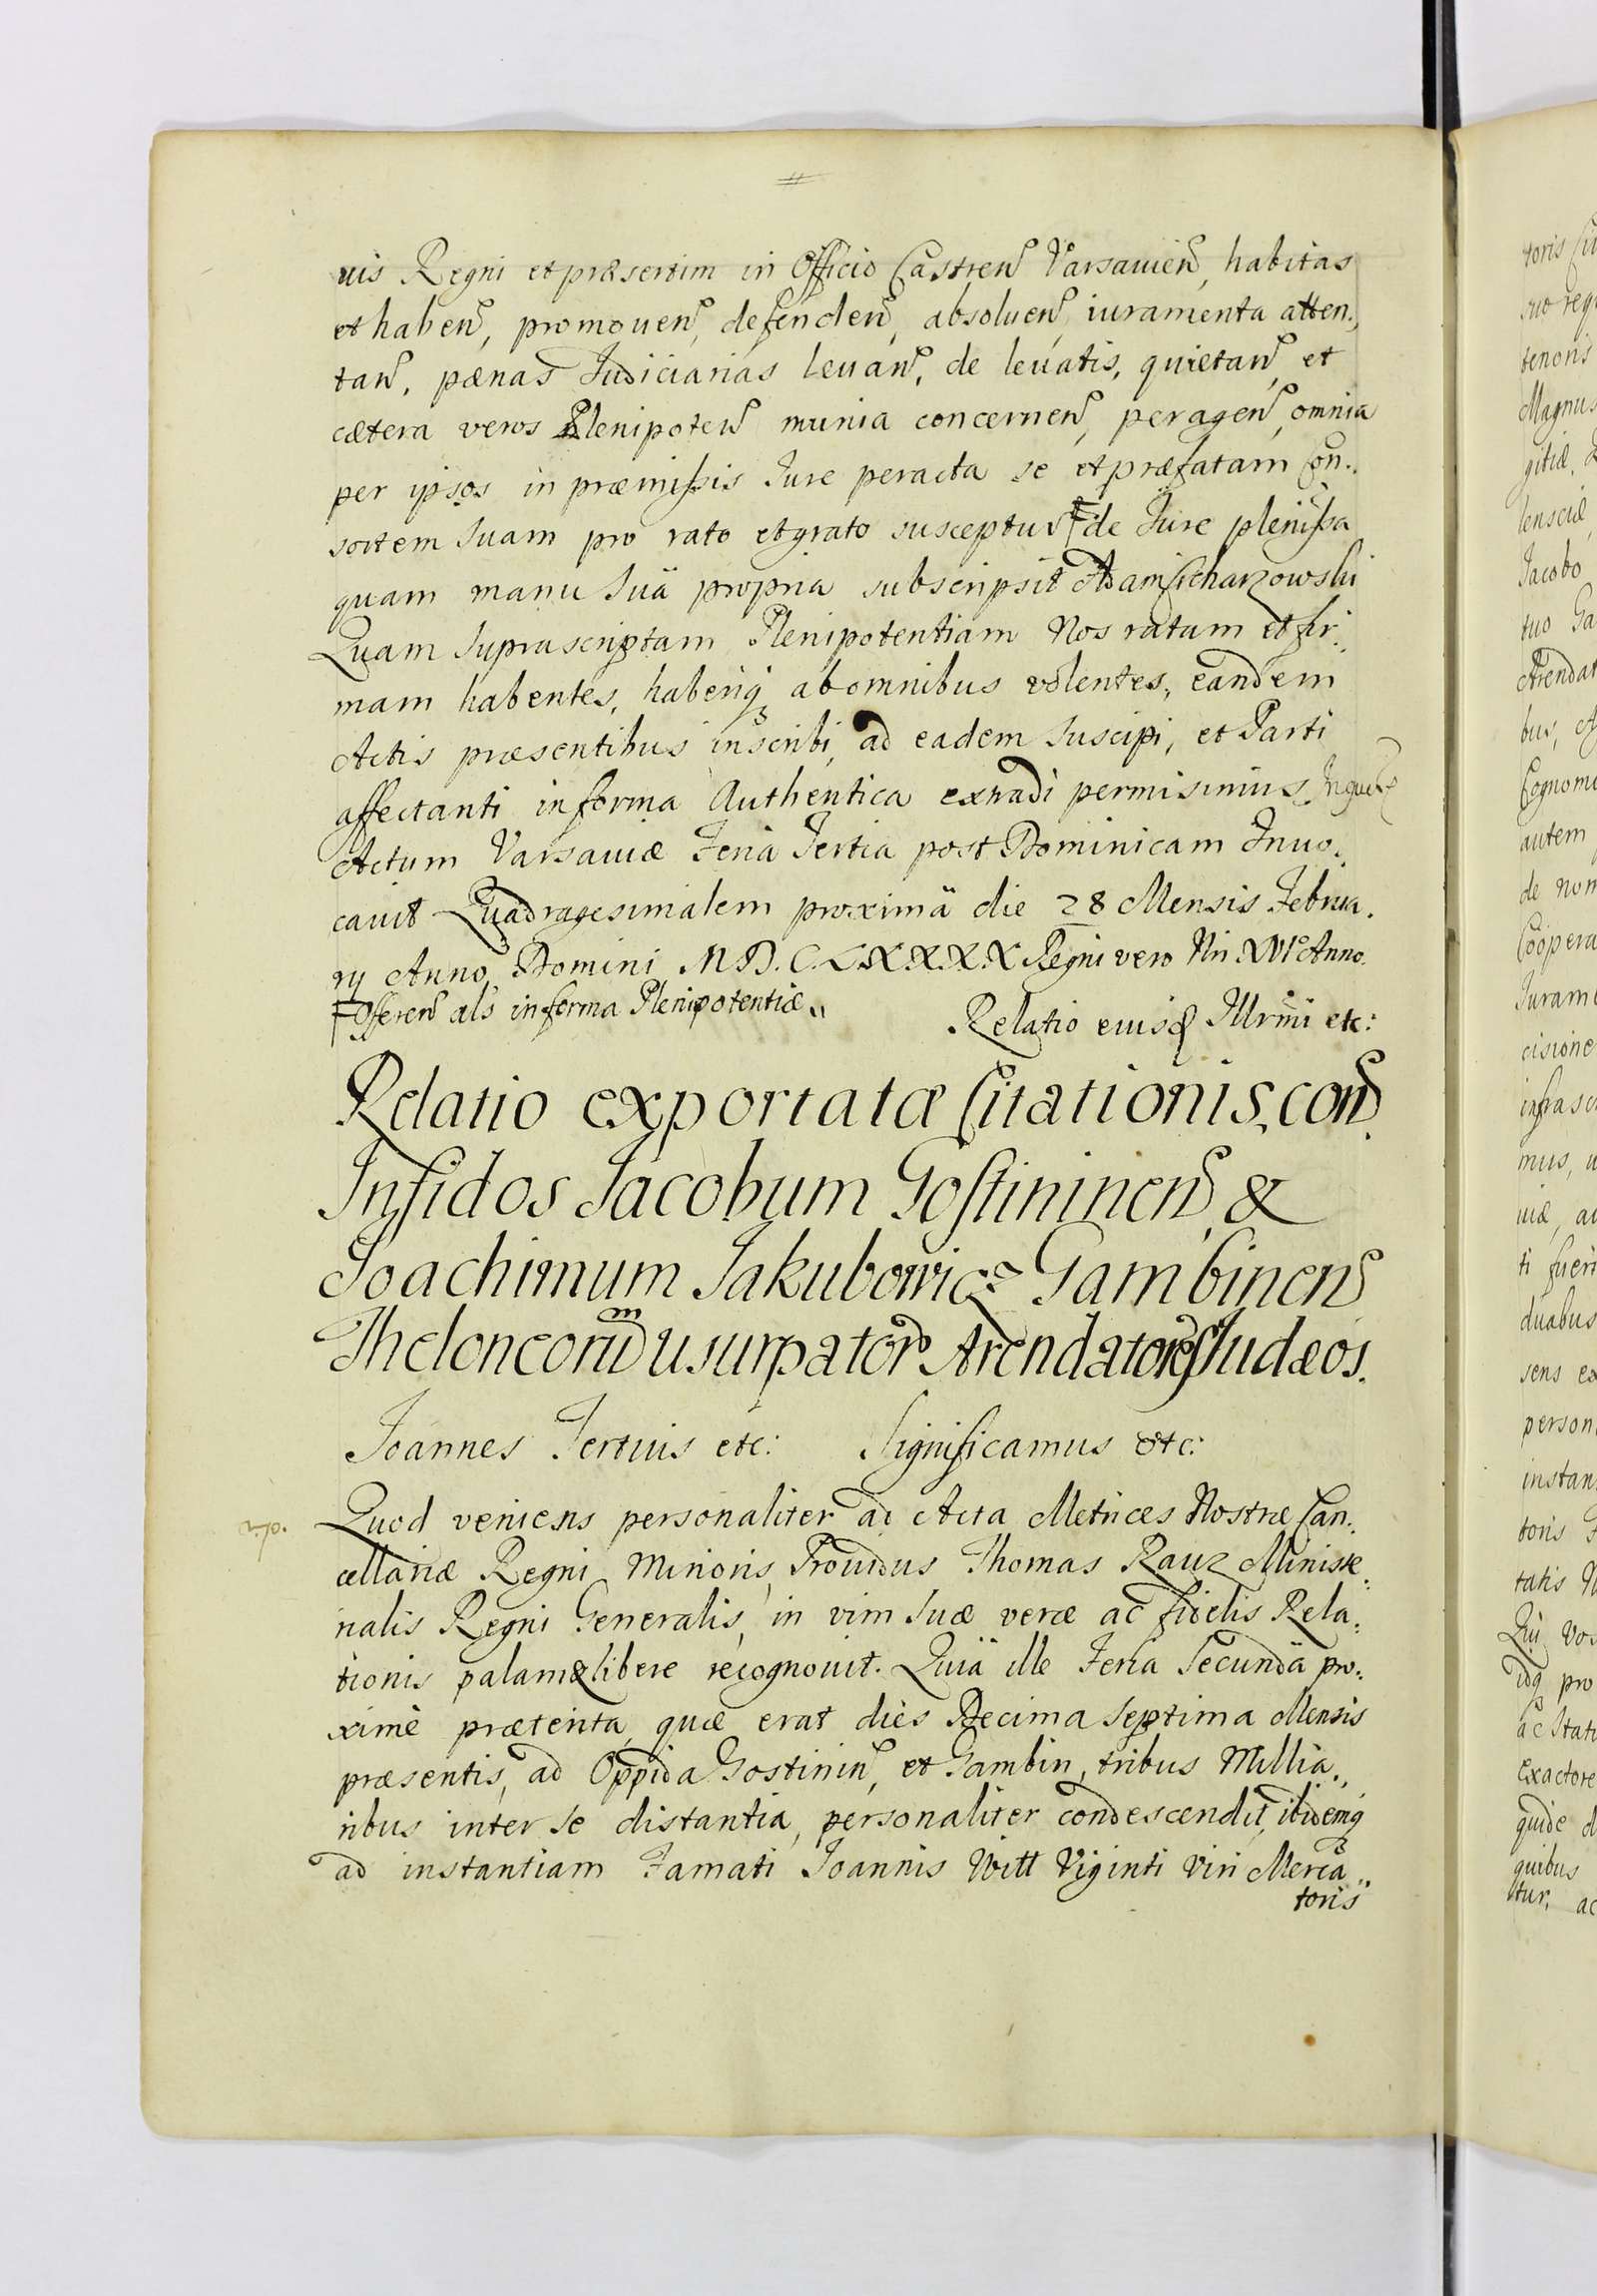 uis Regni et præsertim in Officio Castren Varsauien, habitas
et haben, promouen, defenden, absoluen, iuramenta atten.,
tan, pænas Judiciarias leuan, de leuatis, quietan, et
cætera veros Plenipoten munia concernen, peragen, omnia
per ipsos in præmissis Jure peracta se et præfatam Con.,
sortem suam pro rato et grato susceptur de Jure plenissa
quam manu suä propria subscripsit Adam
Quam suprascriptam Plenipotentiam Nos ratam et fir.,
mam habentes, haberiq abomnibus volentes, eandem
Actis præsentibus inscribi, ad eadem suscipi, et Parti
affectanti in forma Authentica extradi permisimus
Actum Varsauiæ Feria Tertia post Dominicam Inuo.,
cauit Quadragesimalem proximä die 28 Mensis Februa.
rij Anno Domini M.D.C.L.X.X.X.X Regni vero Nri XVI Anno.
Offeren als in forma Plenipotentiæ.
Relatio eiusd Illrmi etc:
Relatio exportatæ Citationis, con
Infidos Jacobum Gostininen &
Joachimum Jakubowicz Gambinen
Theloneorum usurpator Arendatores Judæos.
Joannes Tertius etc: Significamus etc:
Quod veniens personaliter ad Acta Metrices Nostræ Can.,
cellariæ Regni Minoris, Prouidus Thomas Rauz Ministe.,
rialis Regni Generalis, in vim suæ veræ ac fidelis Rela.,
tionis palam & libere recognouit. Quiä ille Feria Secundä pro.,
ximè præterita, quæ erat dies Decima Septima Mensis
præsentis, ad Oppida Gostinin, et Gambin, tribus Millia.,
ribus inter se distantia, personaliter condescendit, ibidemq
ad instantiam Famati Joannis Witt Viginti Viri Merca.,
toris